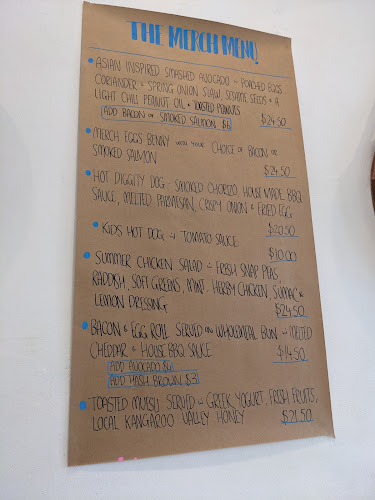 THE MERCH MENU
• ASIAN INSPIRED SMASHED AVOCADO w POACHED EGGS
CORIANDER & SPRING ONION SLAW, SESAME SEEDS & A
LIGHT CHILI PEANUT OIL + TOASTED PEANUTS
$24.50
ADD BACON OR SMOKED SALMON $6
• MERCH EGGS BENNY WITH YOUR CHOICE OF BACON OR
SMOKED SALMON
$24.50
• HOT DIGGITY DOG - SMOKED CHORIZO HOUSE MADE BBQ
SAUCE, MELTED PARMESAN, CRISPY ONION & FRIED EGG
$20.50
• KIDS HOT DOG w TOMATO SAUCE
$10.00
• SUMMER CHICKEN SALAD w FRESH SNAP PEAS,
RADDISH, SOFT GREENS, MINT HERBY CHICKEN, SUMAC &
LEMON DRESSING
$24.50
• BACON & EGG ROLL SERVED ON WHOLEMEAL BUN w MELTED
CHEDDAR & HOUSE BBQ SAUCE
$14.50
ADD AVOCADO $6
ADD HASH BROWN $3
• TOASTED MUESLI SERVED w GREEK YOGURT, FRESH FRUITS,
LOCAL KANGAROO VALLEY HONEY
$21.50